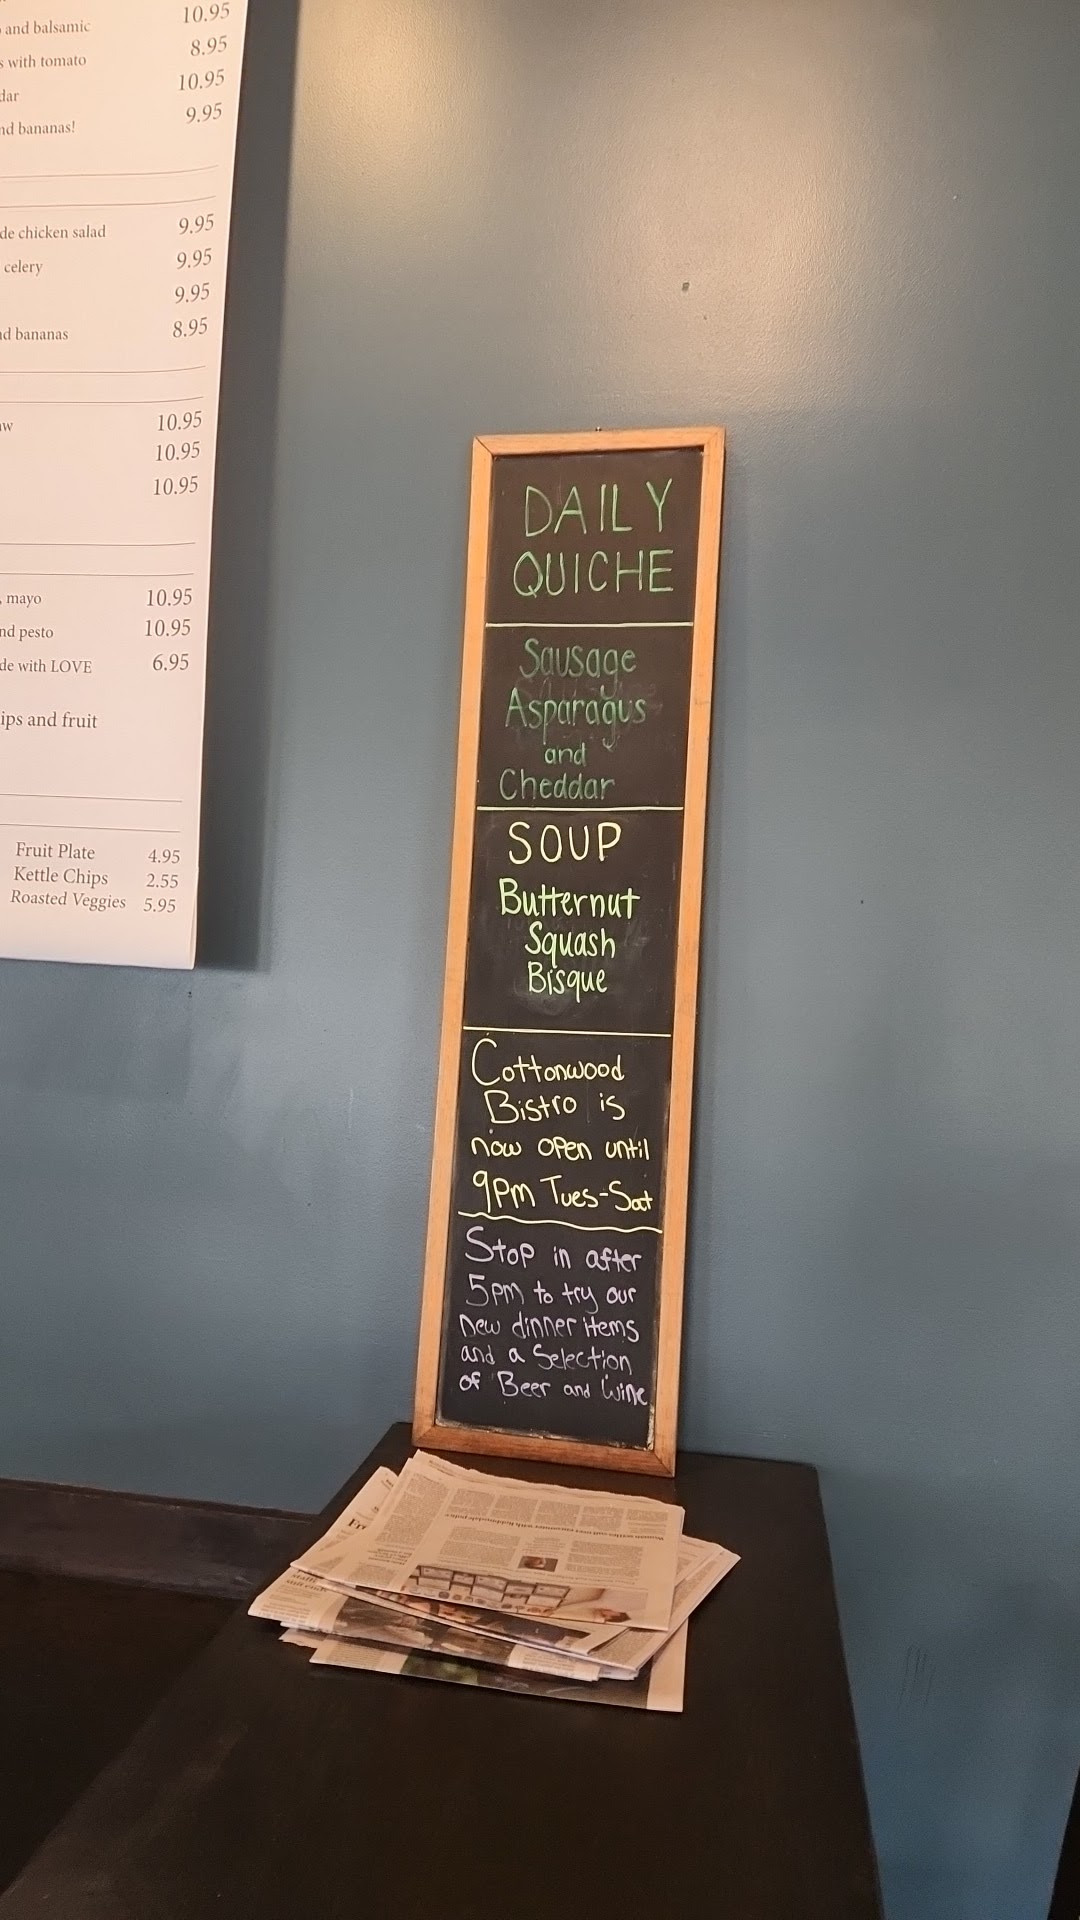 and balsamic 10.95
with tomato 8.95
10.95
bananas! 9.95
chicken salad 9.95
celery 9.95
9.95
bananas 8.95
10.95
10.95
10.95
mayo 10.95
pesto 10.95
with LOVE 6.95
and fruit
Fruit Plate 4.95
Kettle Chips 2.55
Roasted Veggies 5.95
DAILY
QUICHE
Sausage
Asparagus
and
Cheddar
SOUP
Butternut
Squash
Bisque
Cottonwood
Bistro is
now open until
9pm Tues-Sat
Stop in after
5pm to try our
new dinner items
and a Selection
of Beer and Wine